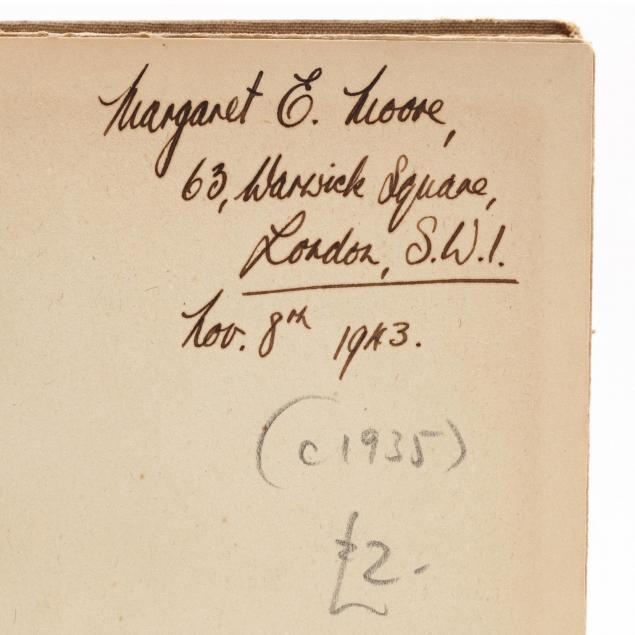 Margaret E. Moore,
63, Warwick Square,
London, S.W.1.
Nov. 8th 1943.
(c 1935)
£2-